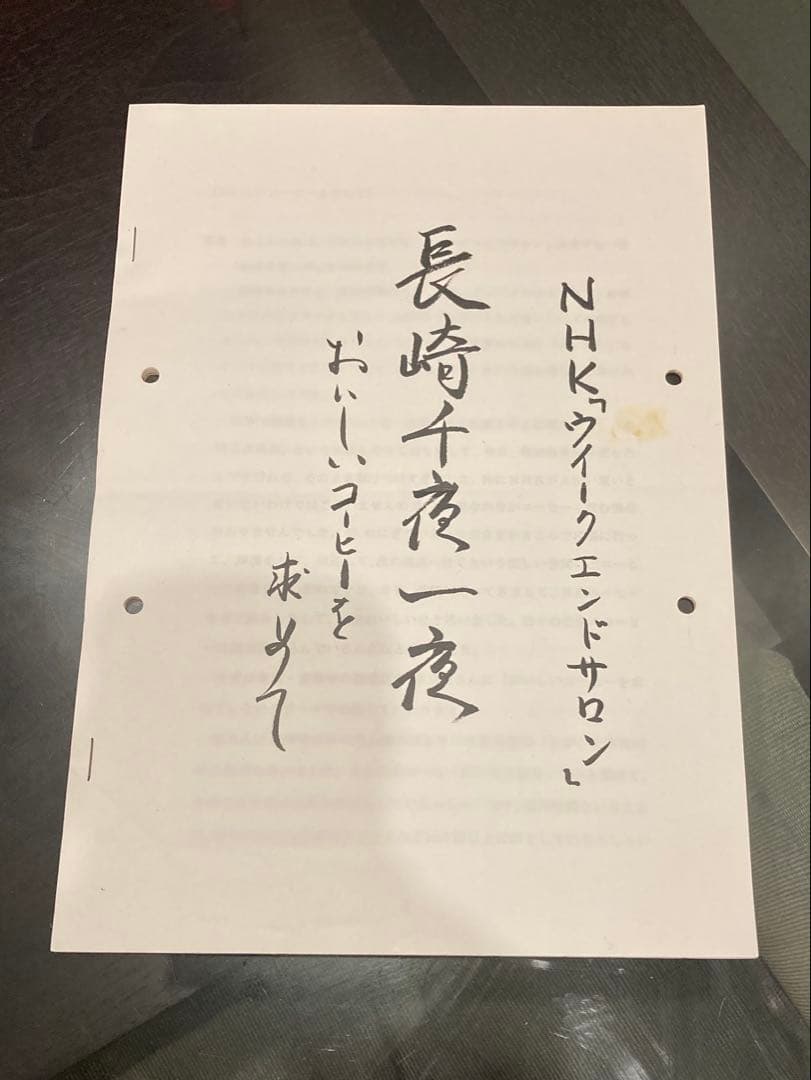 NHK「ウイークエンドサロン」
長崎千夜一夜
おいしいコーヒーを
求めて